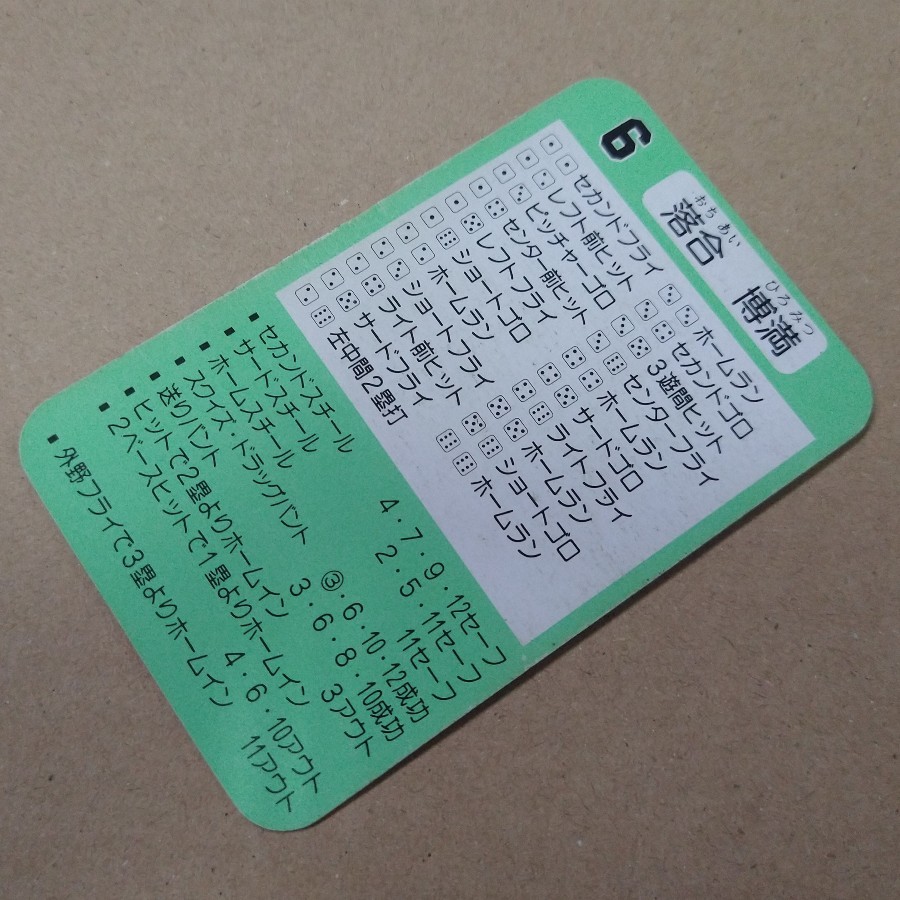 6
おち あい ひろ みつ
落合 博満
セカンドフライ
レフト前ヒット
ピッチャーゴロ
センター前ヒット
レフトフライ
ショートゴロ
ホームラン
ショートフライ
ライト前ヒット
サードフライ
左中間2塁打
ホームラン
セカンドゴロ
3遊間ヒット
センターフライ
ホームラン
サードゴロ
ライトフライ
ホームラン
ショートゴロ
ホームラン
■セカンドスチール 4・7・9・12セーフ
■サードスチール 2・5・11セーフ
■ホームスチール 11セーフ
■スクイズ・ドラッグバント ③・6・10・12成功
■送りバント 3・6・8・10成功
■ヒットで2塁よりホームイン 3アウト
■2ベースヒットで1塁よりホームイン 4・6・10アウト
■外野フライで3塁よりホームイン 11アウト